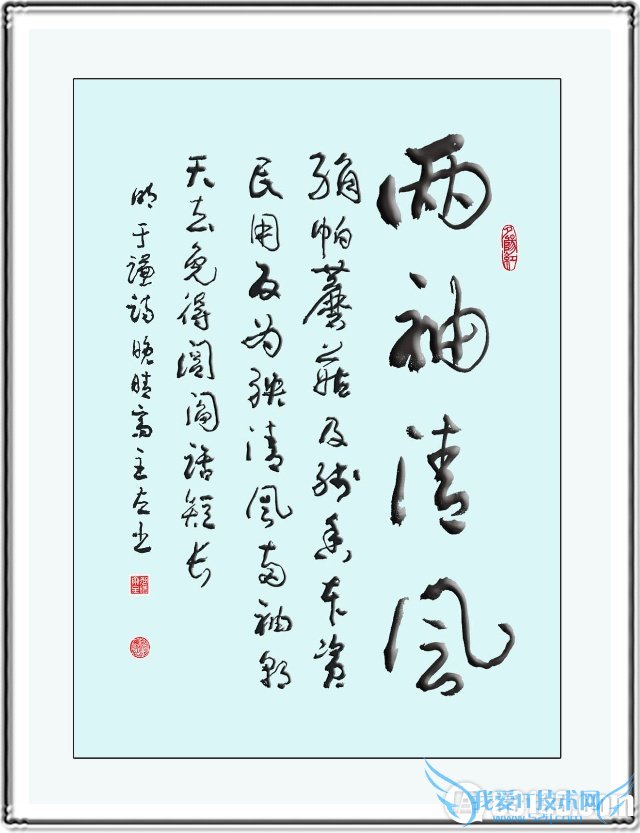 夕陽紅
两袖清风
绢帕蘑菇及线香本资
民用反为殃清风两袖朝
天去免得闾阎话短长
明于谦诗晚晴斋主左书
我爱IT技术网